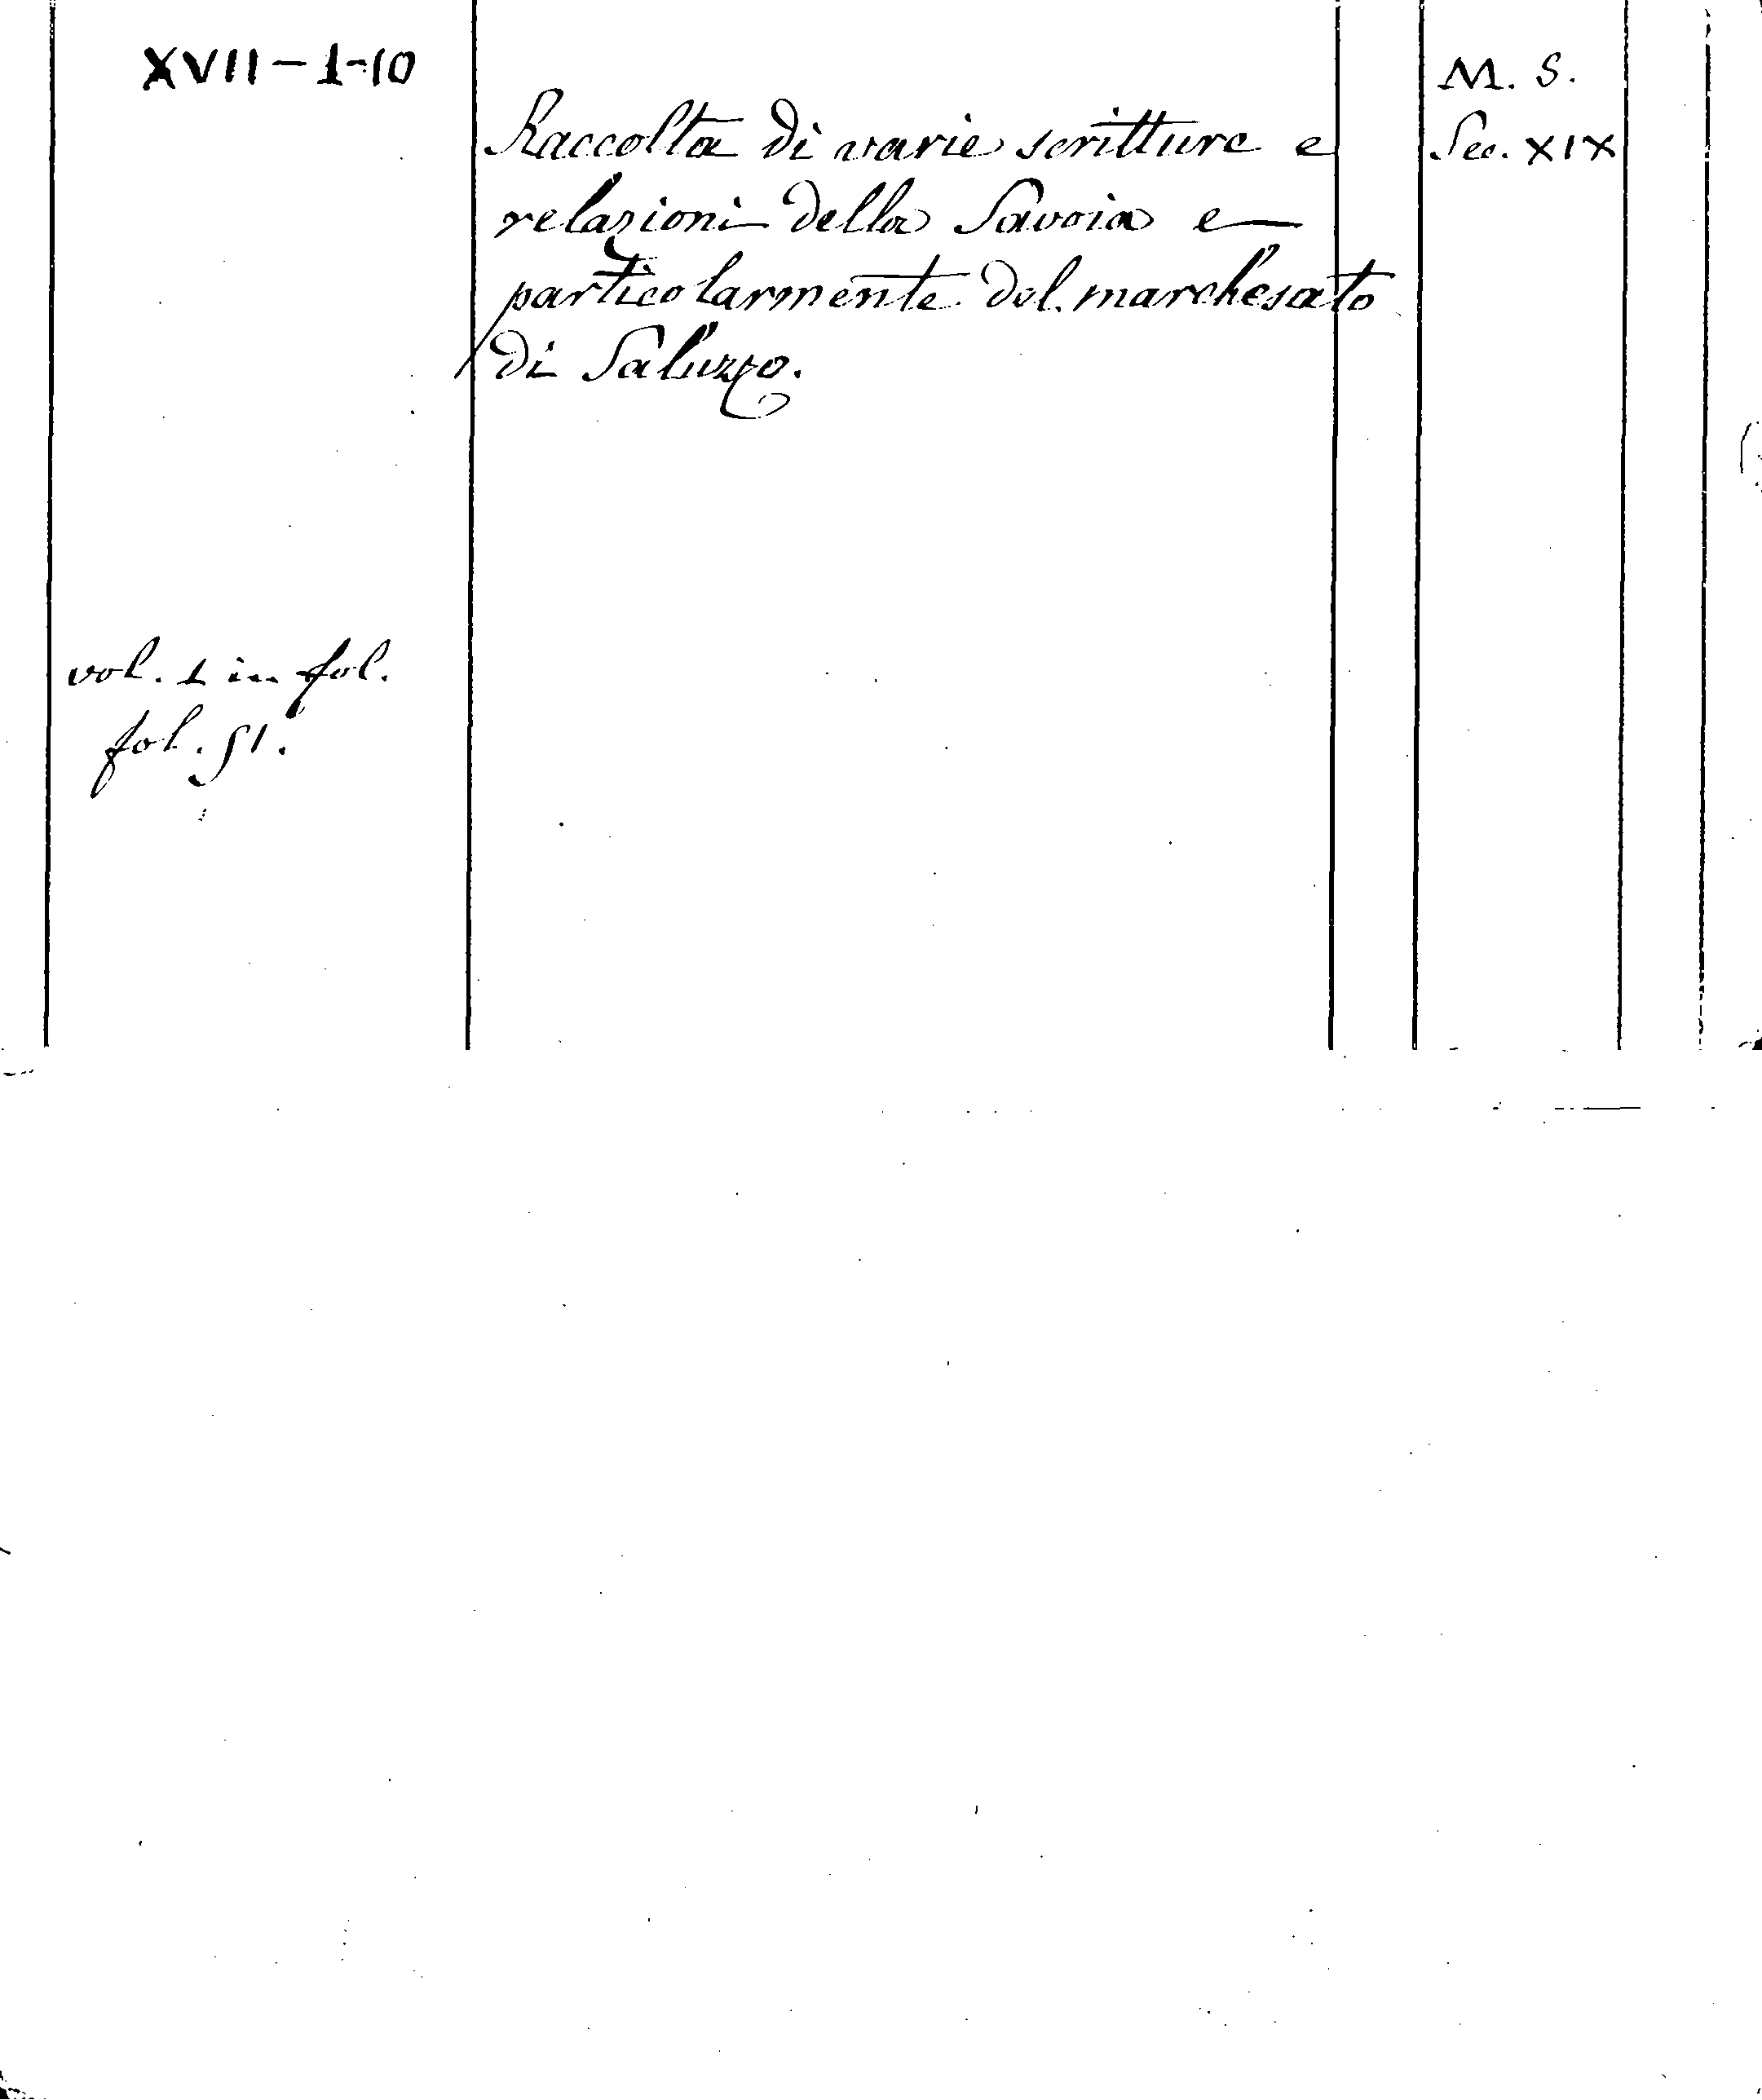 XVII-1-10
Raccolta di varie scritture e
relazioni della Savoia e
particolarmente del marchesato
di Saluzzo.
M. S.
Sec. XIX
vol. 1 in fol.
fol. 51.